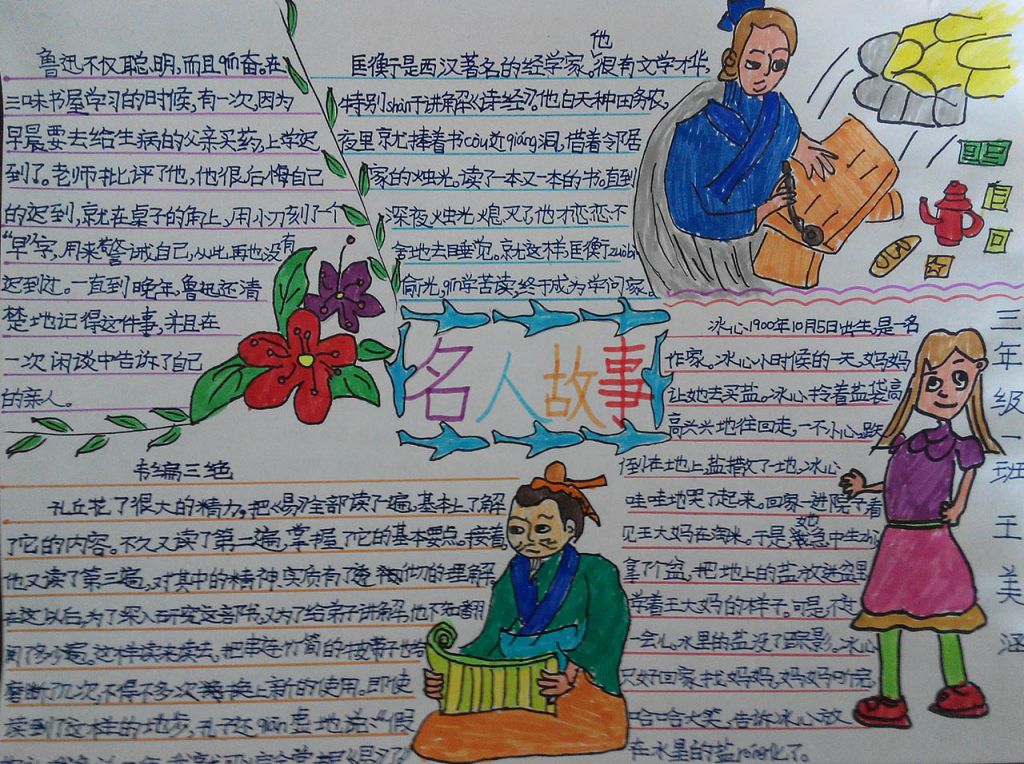 鲁迅不仅聪明,而且qín奋。在
三味书屋学习的时候,有一次,因为
早晨要去给生病的父亲买药,上学迟
到了。老师批评了他,他很后悔自己
的迟到,就在桌子的角上,用小刀刻了个
“早”字,用来警诫自己,从此再也没有
迟到过。一直到晚年,鲁迅还清
楚地记得这件事,并且在
一次闲谈中告诉了自己
的亲人。
匡衡是西汉著名的经学家。他很有文学才华,
特别shàn于讲解《诗经》,他白天种田务农,
夜里就捧着书còu近qiáng洞,借着邻居
家的烛光。读了一本又一本的书。直到
深夜烛光熄灭了他才恋恋不
舍地去睡觉。就这样匡衡
偷光,qín学苦读,终于成为学问家。
名人故事
冰心1900年10月5日出生,是一名
作家。冰心小时候的一天,妈妈
让她去买盐。冰心拎着盐袋高
高兴兴地往回走,一不小心跌
倒在地上,盐撒了一地,冰心
哇哇地哭了起来。回家一进院子看
见王大妈在淘米。于是她急中生
拿了个盆,把地上的盐放进盆里
学着王大妈的样子。可是不过
一会儿,水里的盐没了踪影。冰心
只好回家找妈妈,妈妈听完
哈哈大笑,告诉冰心放
在水里的盐róng化了。
三年级一班王美涵
韦编三绝
孔丘花了很大的精力,把《易》全部读了一遍,基本上了解
了它的内容。不久又读了第二遍,掌握了它的基本要点。接着,
他又读了第三遍,对其中的精神实质有了透彻的理解
在这以后,为了深入研究这部书,又为了给弟子讲解,他不知翻
阅了多少遍。这样读来读去,把串连竹简的牛皮带子也给
磨断了几次,不得不多次换上新的使用。即使
读到了这样的地步,孔子还qiān虚地说:“假